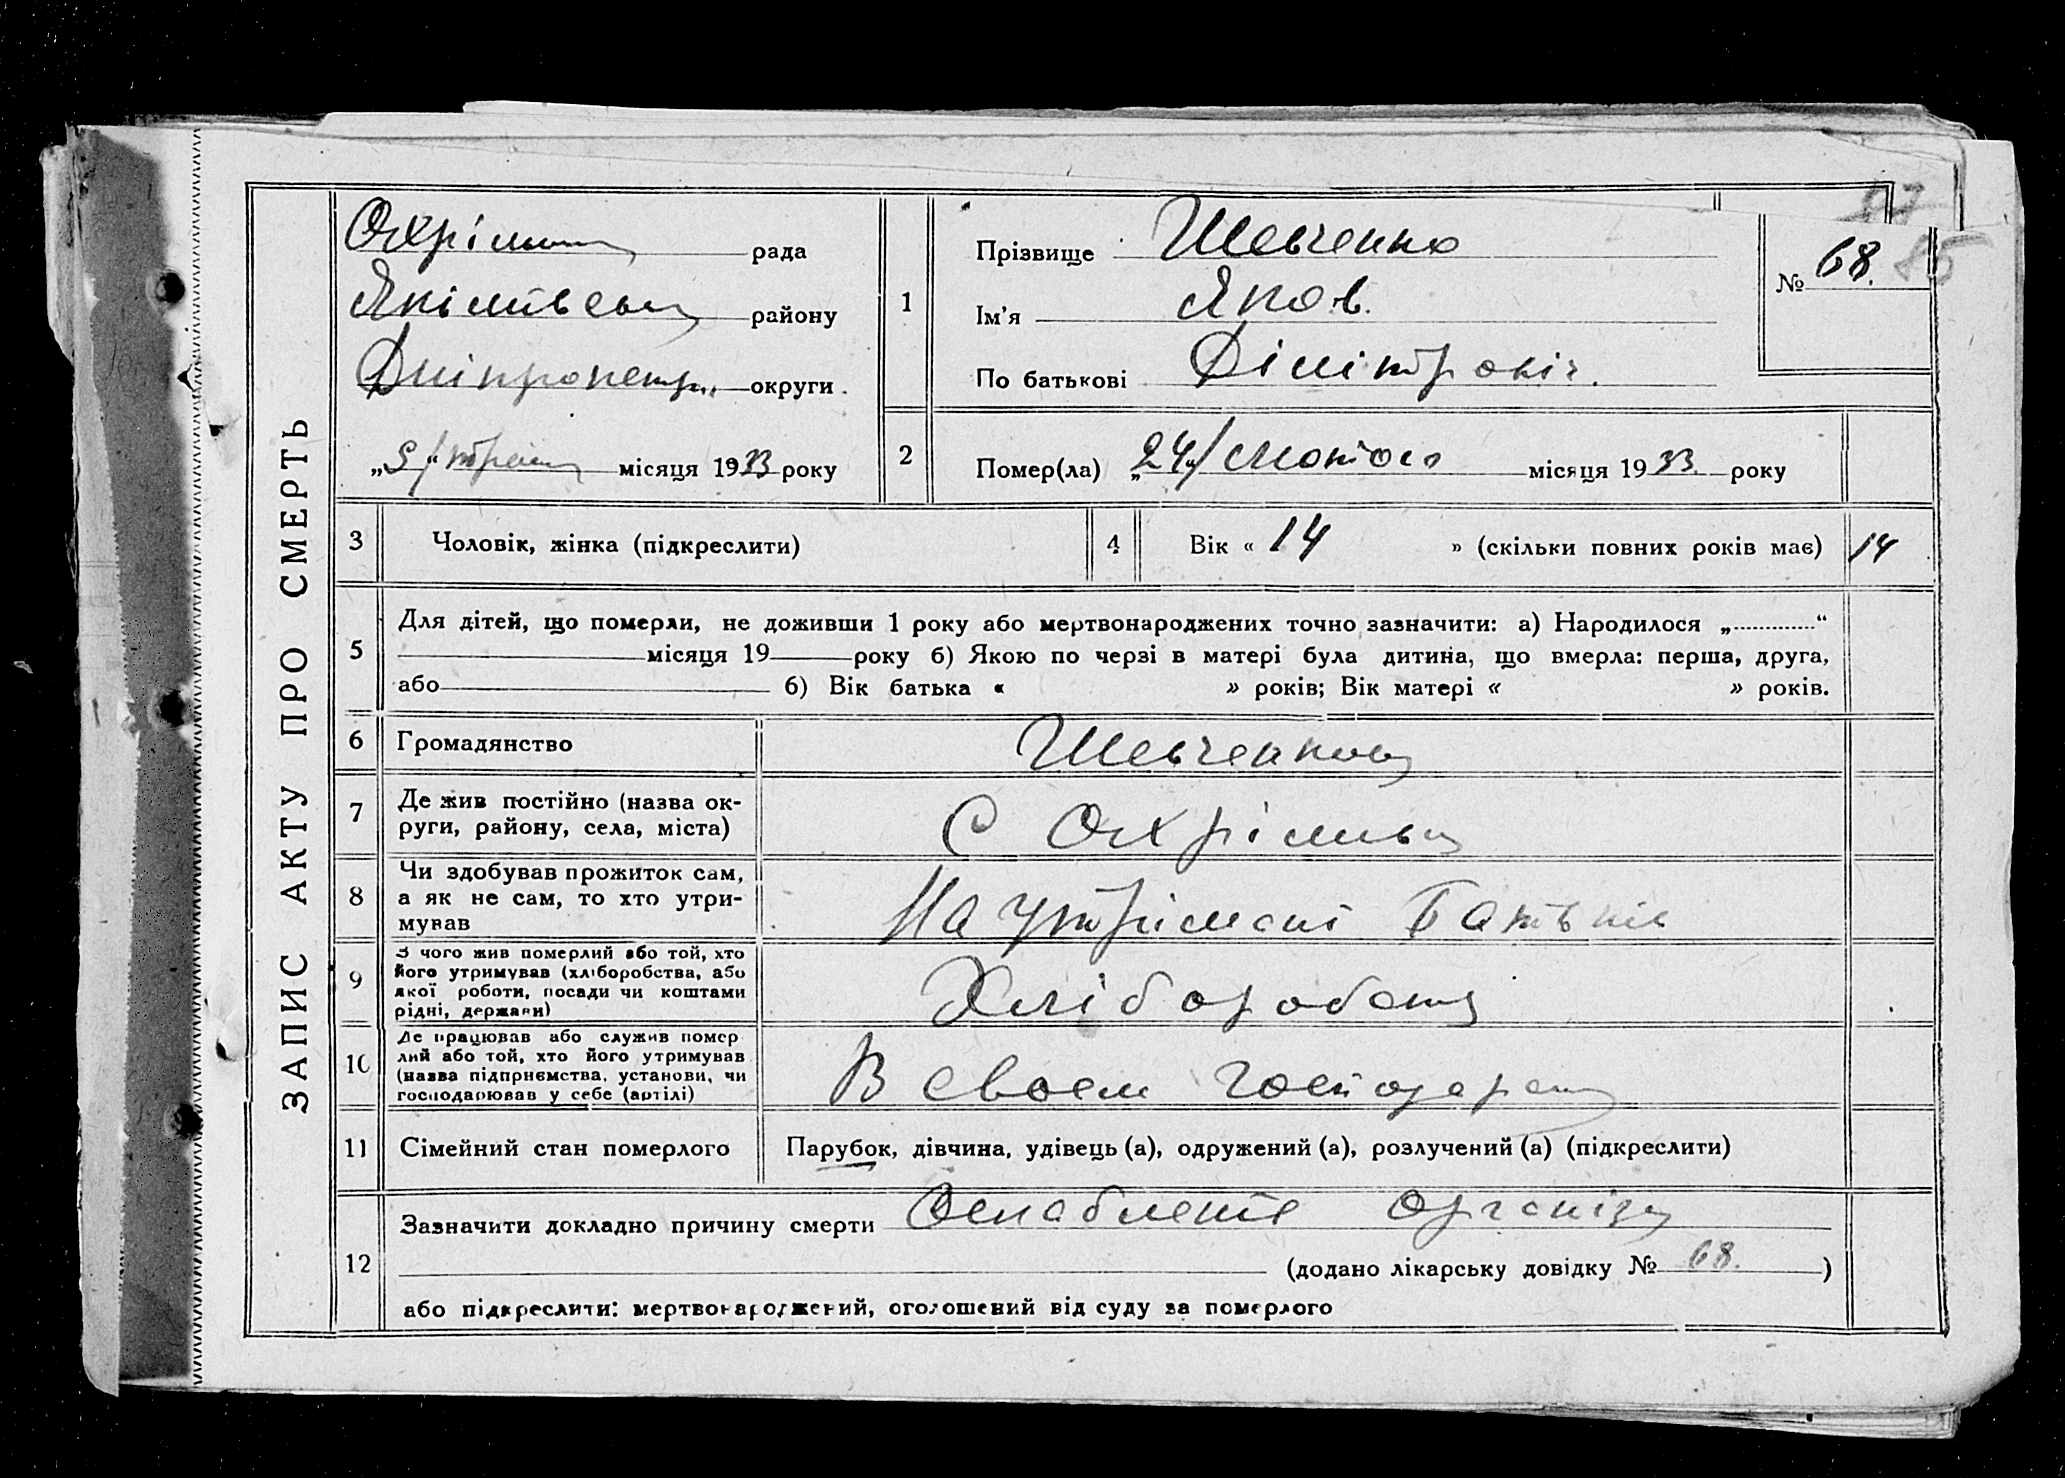 ЗАПИС АКТУ ПРО СМЕРТЬ
рада
району
Дніпропетр. округи
„5“ місяця 1933 року
1
Прізвище Шевченко
Ім’я Яков.
По батькові Дімітровіч.
№ 68.
85
2
Помер(ла) „24“ лютого місяця 1933. року
3
Чоловік, жінка (підкреслити)
4
Вік « 14 » (скільки повних років має)
14
5
Для дітей, що померли, не доживши 1 року або мертвонароджених точно зазначити: а) Народилося „ “
місяця 19 року б) Якою по черзі в матері була дитина, що вмерла: перша, друга,
або б) Вік батька « » років; Вік матері « » років.
6
Громадянство
7
Де жив постійно (назва ок-
руги, району, села, міста)
С
8
Чи здобував прожиток сам,
а як не сам, то хто утри-
мував
На утрімані Батьків
9
З чого жив померлий або той, хто
його утримував (хліборобства, або
якої роботи, посади чи коштами
рідні, держави)
10
Де працював або служив помер
лий або той, хто його утримував
(назва підприємства, установи, чи
господарював у себе (артілі)
В своем
11
Сімейний стан померлого
Парубок, дівчина, удівець (а), одружений (а), розлучений (а) (підкреслити)
12
Зазначити докладно причину смерти Ослаблення
(додано лікарську довідку № 68. )
або підкреслити: мертвонароджений, оголошений від суду за померлого